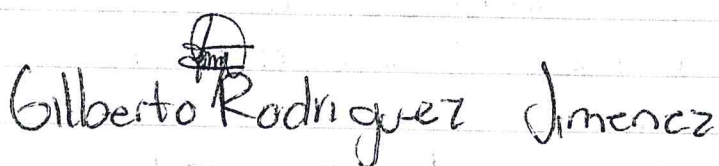 Gilberto Rodriguez Jimenez